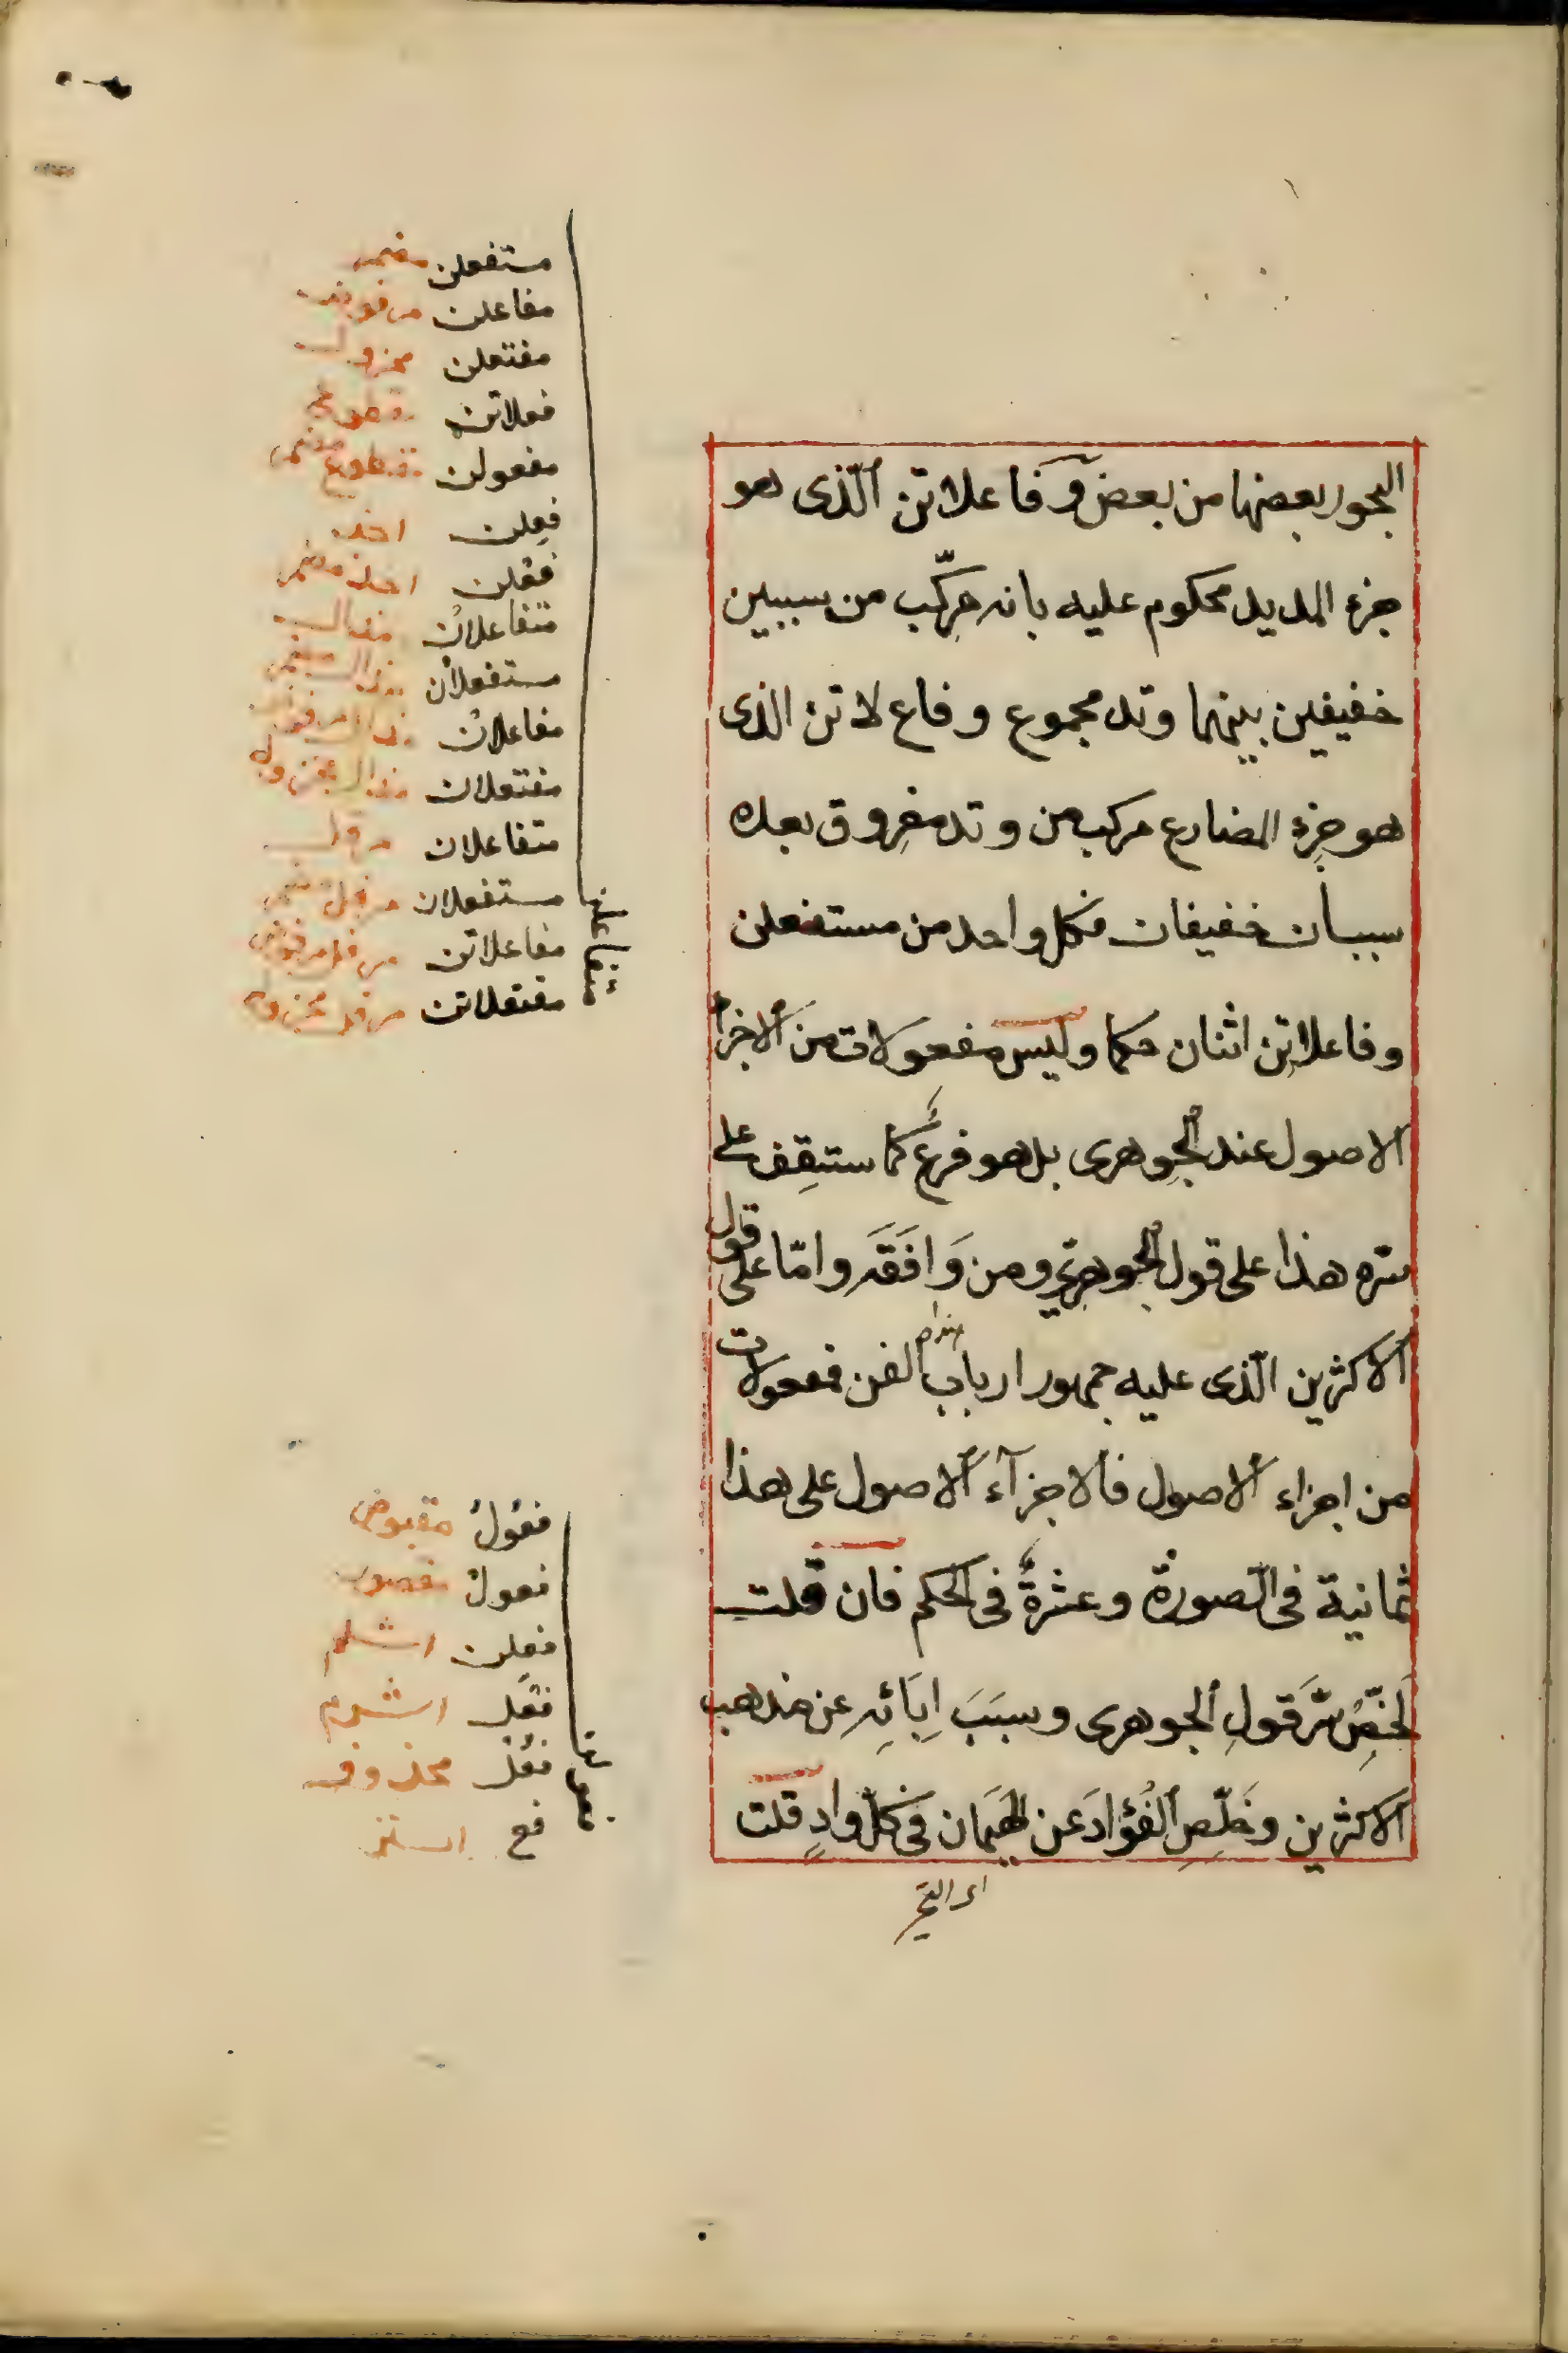 البحور بعضها من بعض وفاعلاتن الّذى هو
جزء المديد محكوم عليه بانه مركّب من سببين
خفيفين بينهما وتد مجموع وفاع لاتن الذى
هو جزء المضارع مركب من وتد مفروق بعده
سببان خفيفان فكل واحد من مستفعلن
وفاعلاتن اثنان حكما وليس مفعولات من الاجزاء
الاصول عند الجوهرى بل هو فرع كما ستقف على
سره هذا على قول الجوهرى ومن وَافَقَه وامّا على قول
الاكثرين الّذى عليه جمهور ارباب هذا الفن فمفعولات
من اجزاء الاصول فالاجزآء الاصول على هذا
ثمانية فى الصورة وعشرةٌ فى الحكم فان قلت
لخّصْ سرَّ قولِ الجوهرى وسبَبَ اِبَائِه عن مذهب
الاكثرين وخَلِّصِ الفُؤادَ عن الهَيَمان فى كلّ وادٍ قلت
اى التحير
متفاعلن
مستفعلن مضمر
مفاعلن موقوص
مفتعلن مخزول
فعلاتن مقطوع
مفعولن مقطوع مضمر
فعِلن احذ
فعْلن احذ مضمر
متفاعلانْ مذال
مستفعلان مذال مضمر
مفاعلان مذال موقوص
مفتعلان مذال مخزول
متفاعلان مرفل
مستفعلان مرفل مضمر
مفاعلاتن مرفل موقوص
مفتعلاتن مرفل مخزول
فعولن
فعُولُ مقبوض
فعولْ مقصور
فعلن اثلم
فعْلُ اثرم
فعَلْ محذوف
فع ابتر